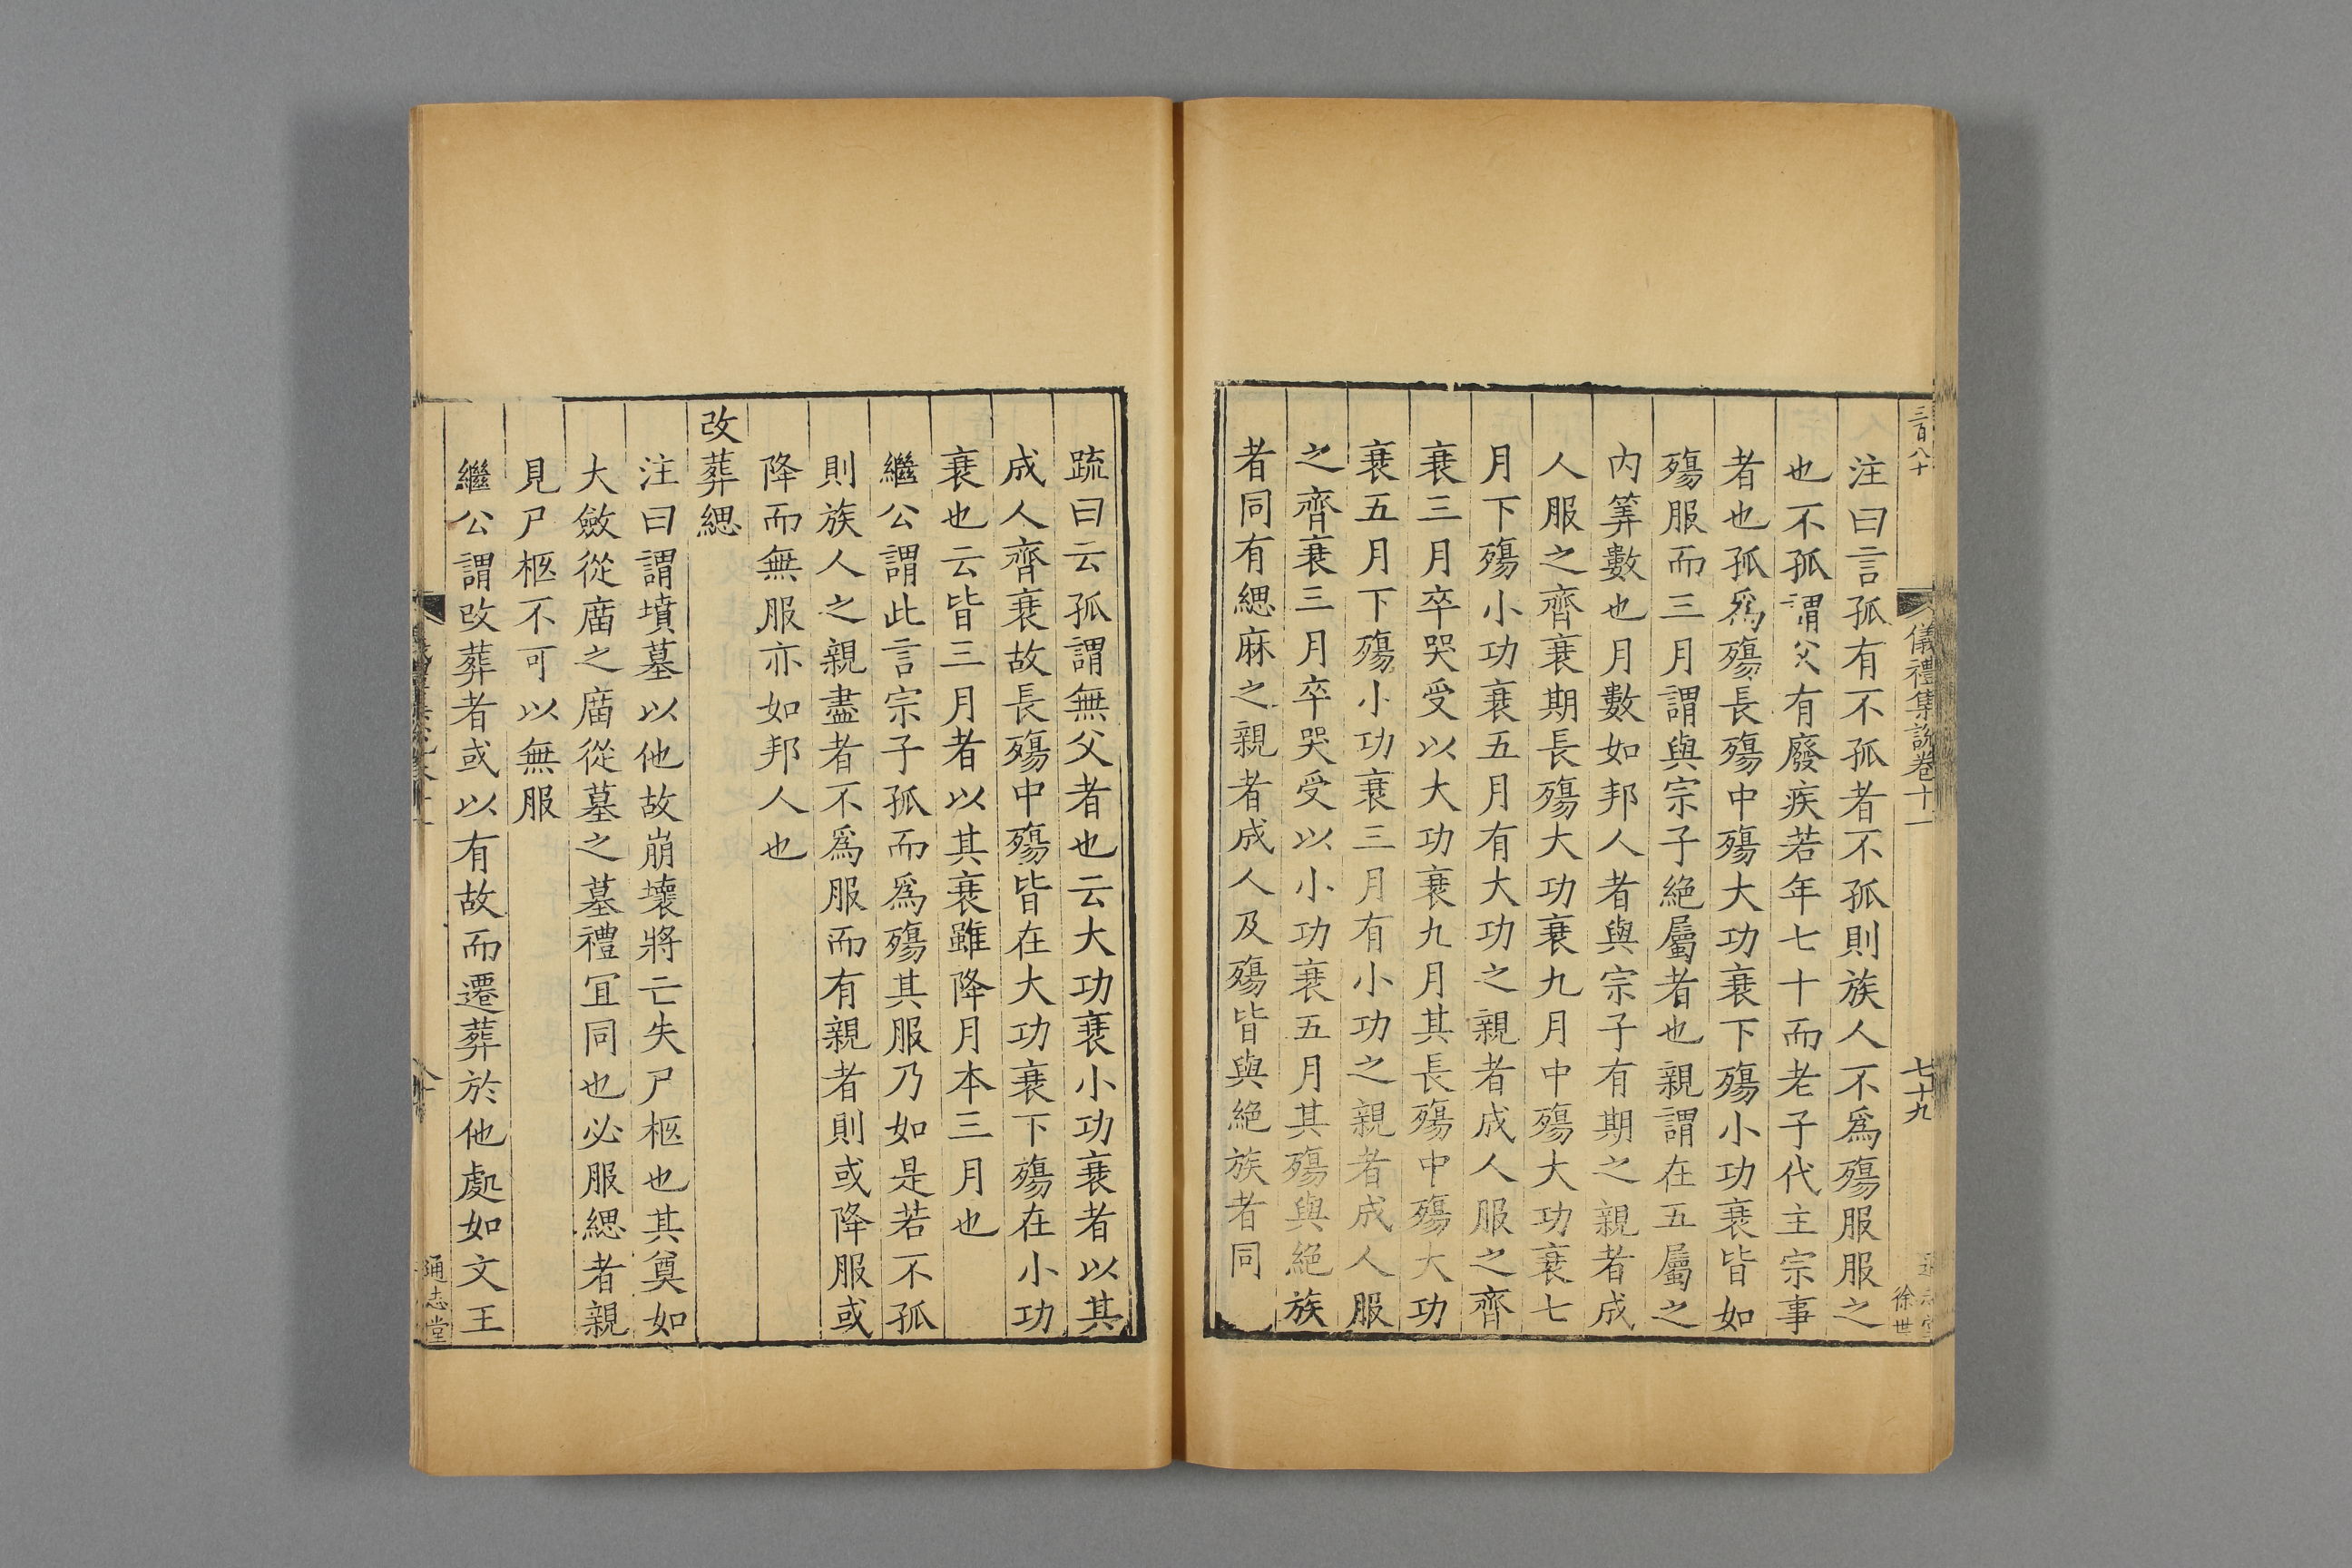 三百八十
儀禮集說卷十一
七十九
徐世
注曰言孤有不孤者不孤則族人不爲殤服服之
也不孤謂父有廢疾若年七十而老子代主宗事
者也孤爲殤長殤中殤大功衰下殤小功衰皆如
殤服而三月謂與宗子絶屬者也親謂在五屬之
內筭數也月數如邦人者與宗子有期之親者成
人服之齊衰期長殤大功衰九月中殤大功衰七
月下殤小功衰五月有大功之親者成人服之齊
衰三月卒哭受以大功衰九月其長殤中殤大功
衰五月下殤小功衰三月有小功之親者成人服
之齊衰三月卒哭受以小功衰五月其殤與絶族
者同有緦麻之親者成人及殤皆與絶族者同
疏曰云孤謂無父者也云大功衰小功衰者以其
成人齊衰故長殤中殤皆在大功衰下殤在小功
衰也云皆三月者以其衰雖降月本三月也
繼公謂此言宗子孤而爲殤其服乃如是若不孤
則族人之親盡者不爲服而有親者則或降服或
降而無服亦如邦人也
改葬緦
注曰謂墳墓以他故崩壞將亡失尸柩也其奠如
大斂從廟之廟從墓之墓禮冝同也必服緦者親
見尸柩不可以無服
繼公謂改葬者或以有故而遷葬於他處如文王
通志堂